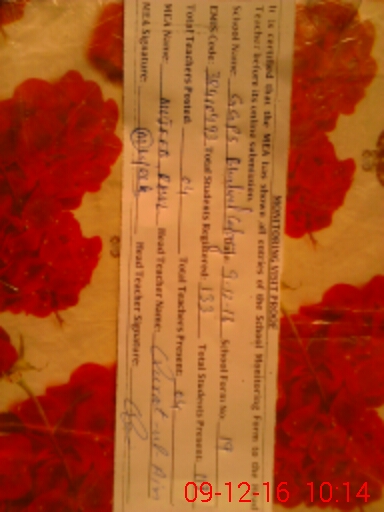 MONITORING VISIT PROOF
It is certified that the MEA has shown all entries of the School Monitoring Form to the Head
Teacher before its online submission.
School Name: GGPS Date: 9-12-16 School Form No: 19
EMIS Code: Total Students Registered: 133 Total Students Present:
Total Teachers Posted: 04 Total Teachers Present: 04
MEA Name: Head Teacher Name: Qurat ul Ain
MEA Signature: Head Teacher Signature:
09-12-16 10:14